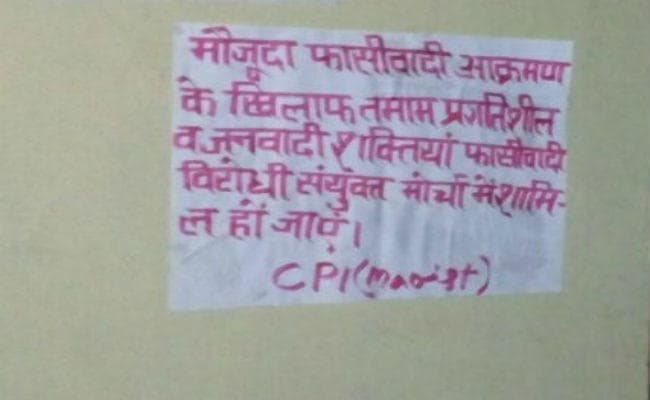 मौजूदा फासीवादी आक्रमण
के खिलाफ तमाम प्रगतिशील
व जनवादी शक्तियां फासीवादी
विरोधी संयुक्त मोर्चा में शामि-
ल हों जाएं।
CPI(Maoist)